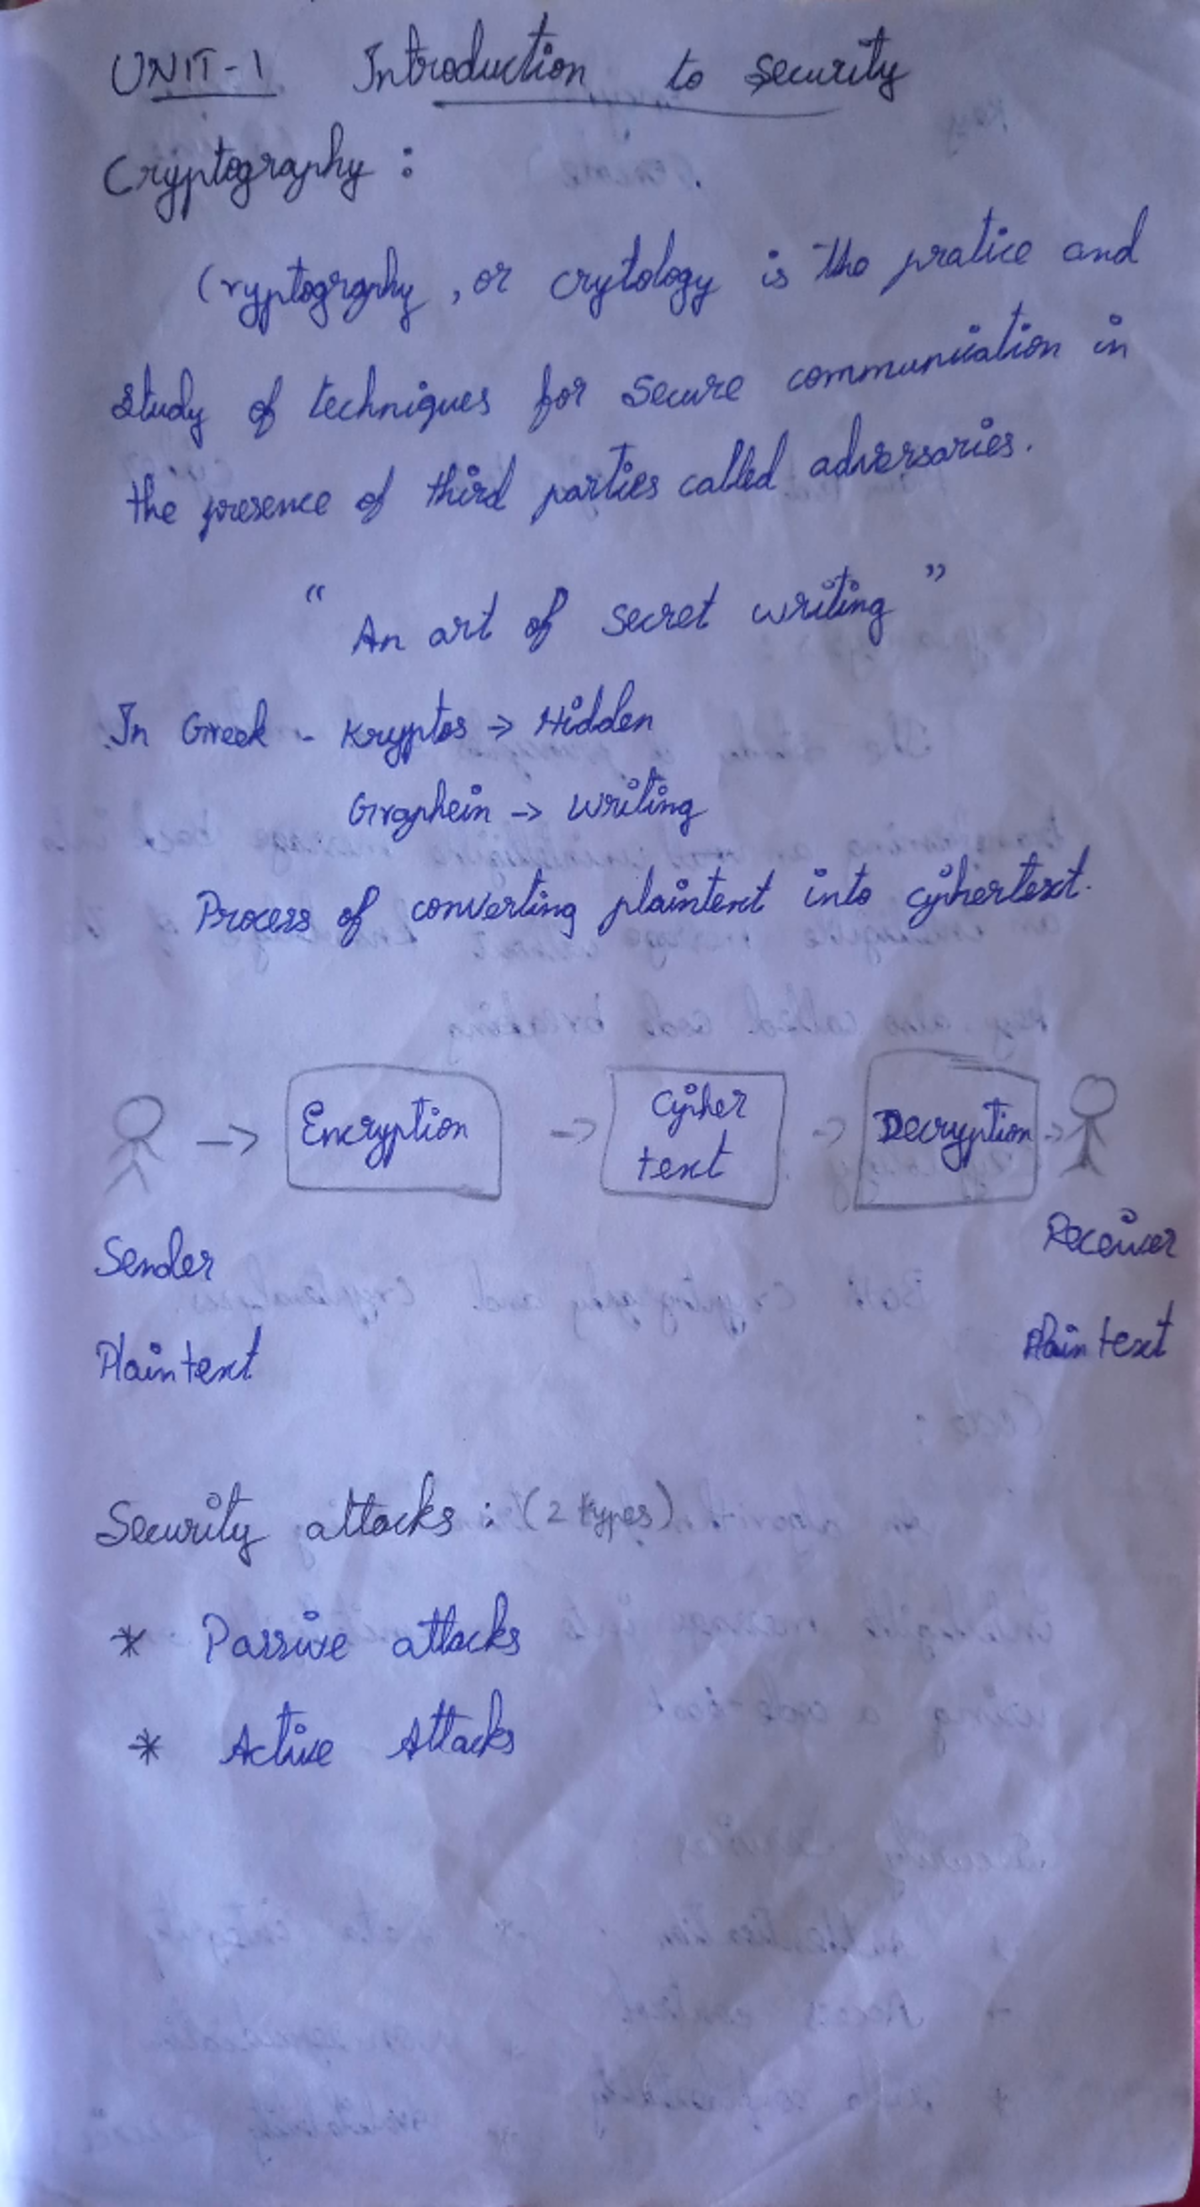 UNIT-1 Introduction to security
Cryptography :
Cryptography, or crytology is the pratice and
study of techniques for secure communication in
the presence of third parties called adversaries.
" An art of secret writing "
In Greek - Kryptos -> Hidden
Graphein -> writing
Process of converting plaintext into cyhertext.
-> Encryption -> Cyher text -> Decryption ->
Sender Receiver
Plain text Plain text
Security attacks : (2 types)
* Passive attacks
* Active Attacks